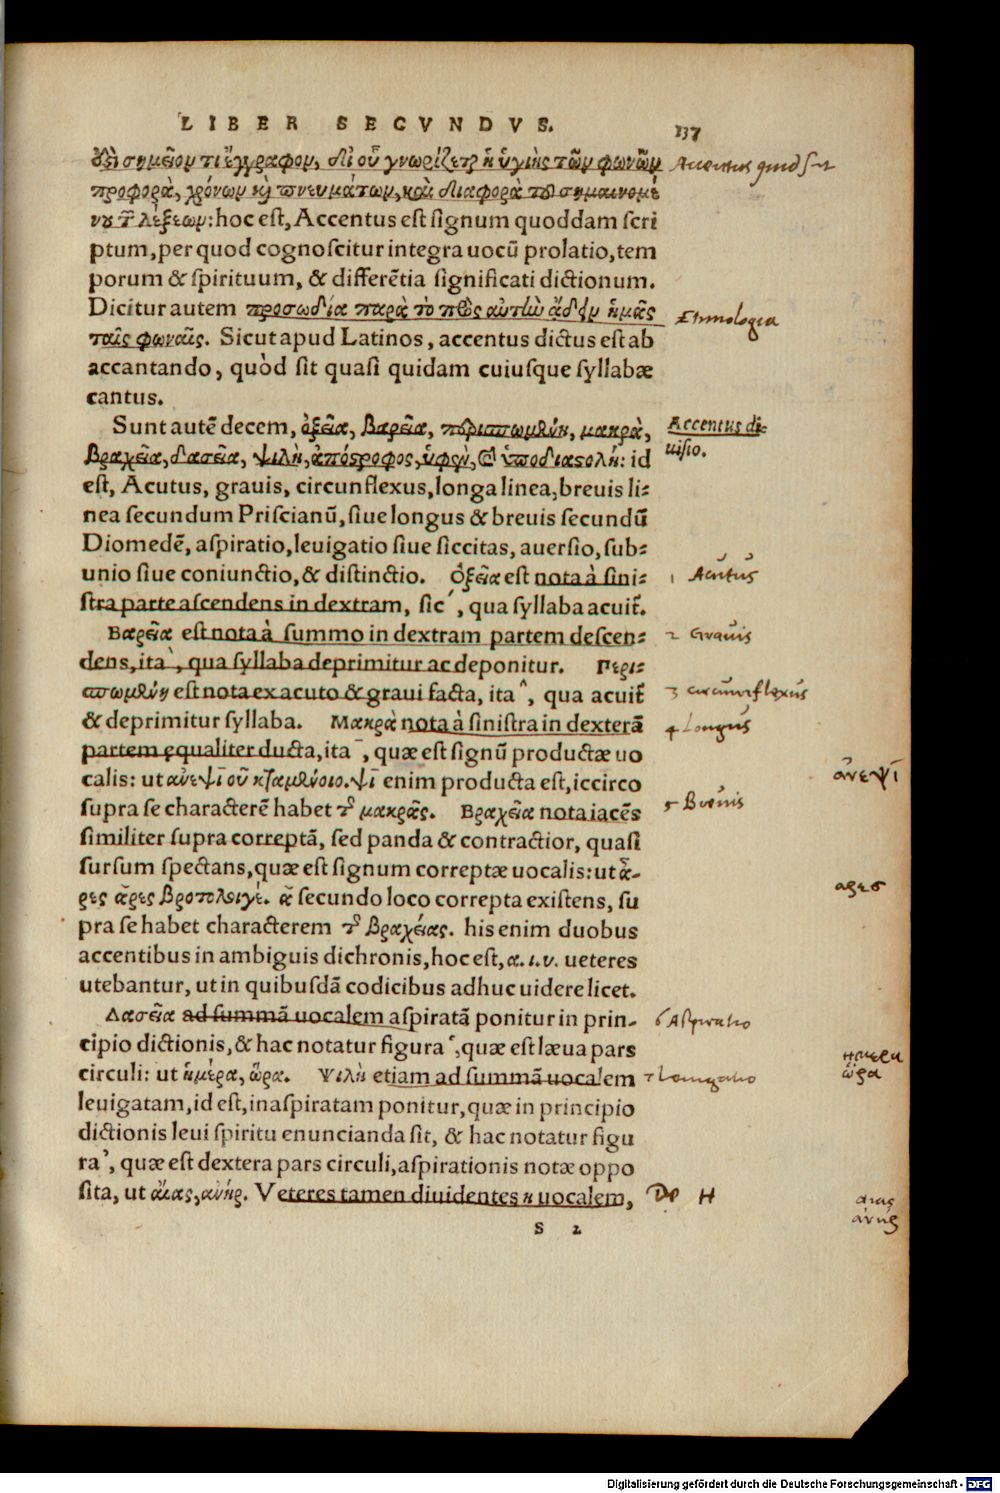 LIBER SECVNDVS.
137
ὅξι σημεῖομ τι ἔγγραφομ, δι οὗ γνωρίζεται ἡ ὑγιὴς τῶμ φωνῶμ
Accentus quid sit
προφορὰ, χρόνωμ καὶ πνευμάτωμ, καὶ διαφορὰ τοῦ σημαινομέ
νου τ λέξεωμ: hoc est, Accentus est signum quoddam scri
ptum, per quod cognoscitur integra uocū prolatio, tem
porum & spirituum, & differētia significati dictionum.
Dicitur autem προσωδία παρὰ τὸ πρὸς αὐτὴν ἄδειν ἡμᾶς
Etimologia
ταῖς φωναῖς. Sicut apud Latinos, accentus dictus est ab
accantando, quòd sit quasi quidam cuiusque syllabæ
cantus.
Sunt autē decem, ὀξεῖα, βαρεῖα, περισπωμένη, μακρὰ,
Accentus di-
βραχεῖα, δασεῖα, ψιλὴ, ἀπόστροφος, ὑφὲν, & ὑποδιαστολὴ: id
uisio.
est, Acutus, grauis, circunflexus, longa linea, breuis li-
nea secundum Priscianū, siue longus & breuis secundū
Diomedē, aspiratio, leuigatio siue siccitas, auersio, sub-
unio siue coniunctio, & distinctio. Ὀξεῖα est nota à sini-
1 Acutus
stra parte ascendens in dextram, sic ´, qua syllaba acuit̃.
Βαρεῖα est nota à summo in dextram partem descen-
2 Grauis
dens, ita `, qua syllaba deprimitur ac deponitur. Περι-
σπωμένη est nota ex acuto & graui facta, ita ^, qua acuit̃
3 circumflexus
& deprimitur syllaba. Μακρὰ nota à sinistra in dexterā
4 Longus
partem ęqualiter ducta, ita ¯, quæ est signū productæ uo
calis: ut ἀνεψῑ οῦ κταμένοιο. ψῑ enim producta est, iccirco
ἀνεψῑ
supra se characterē habet τ μακρᾶς. Βραχεῖα nota iacēs
5 Breuis
similiter supra correptā, sed panda & contractior, quasi
sursum spectans, quæ est signum correptæ uocalis: ut ἆ-
ρες ἄρες βροτολοιγέ. ἄ secundo loco correpta existens, su
αρες
pra se habet characterem τ βραχείας. his enim duobus
accentibus in ambiguis dichronis, hoc est, α. ι. υ. ueteres
utebantur, ut in quibusdā codicibus adhuc uidere licet.
Δασεῖα ad summā uocalem aspiratā ponitur in prin-
6 Aspiratio
cipio dictionis, & hac notatur figura ʽ, quæ est læua pars
ημερα
circuli: ut ἡμέρα, ὥρα. Ψιλὴ etiam ad summā uocalem
7 Leuigatio
ὥρα
leuigatam, id est, inaspiratam ponitur, quæ in principio
dictionis leui spiritu enuncianda sit, & hac notatur figu
ra ʼ, quæ est dextera pars circuli, aspirationis notæ oppo
sita, ut αἴας, ανήρ. Veteres tamen diuidentes η uocalem,
De H
αιας
ἀνηρ
S 2
Digitalisierung gefördert durch die Deutsche Forschungsgemeinschaft - DFG